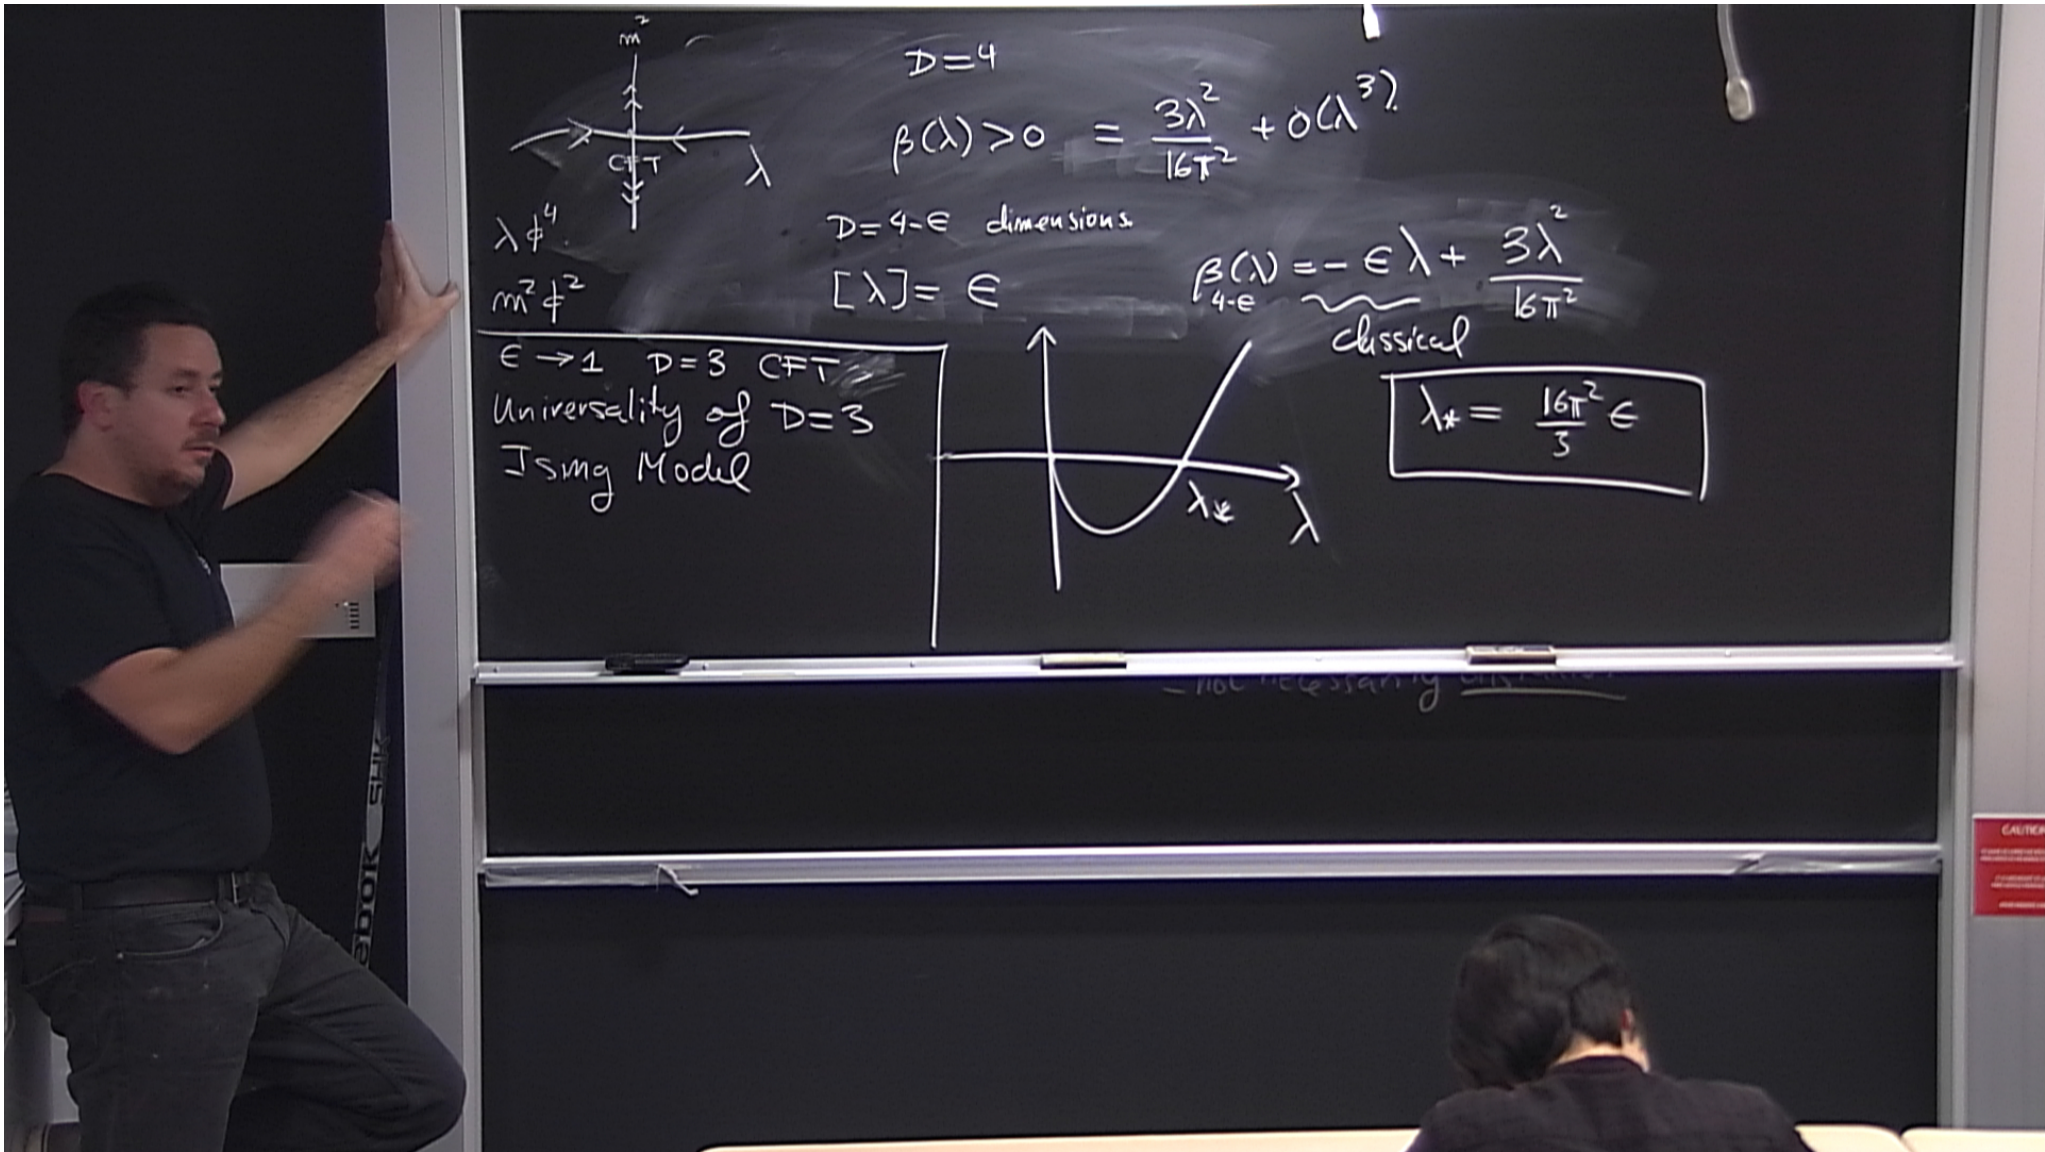 m²
CFT
λ
λϕ⁴
m²ϕ²
D=4
β(λ)>0 = 3λ²/16π² + O(λ³)
D=4-ϵ dimensions.
[λ]= ϵ
β(λ) = -ϵλ + 3λ²/16π²
4-ϵ
classical
ϵ→1 D=3 CFT
Universality of D=3
Ising Model
λ*
λ
λ* = 16π²/3 ϵ
- not necessarily
CAUTION